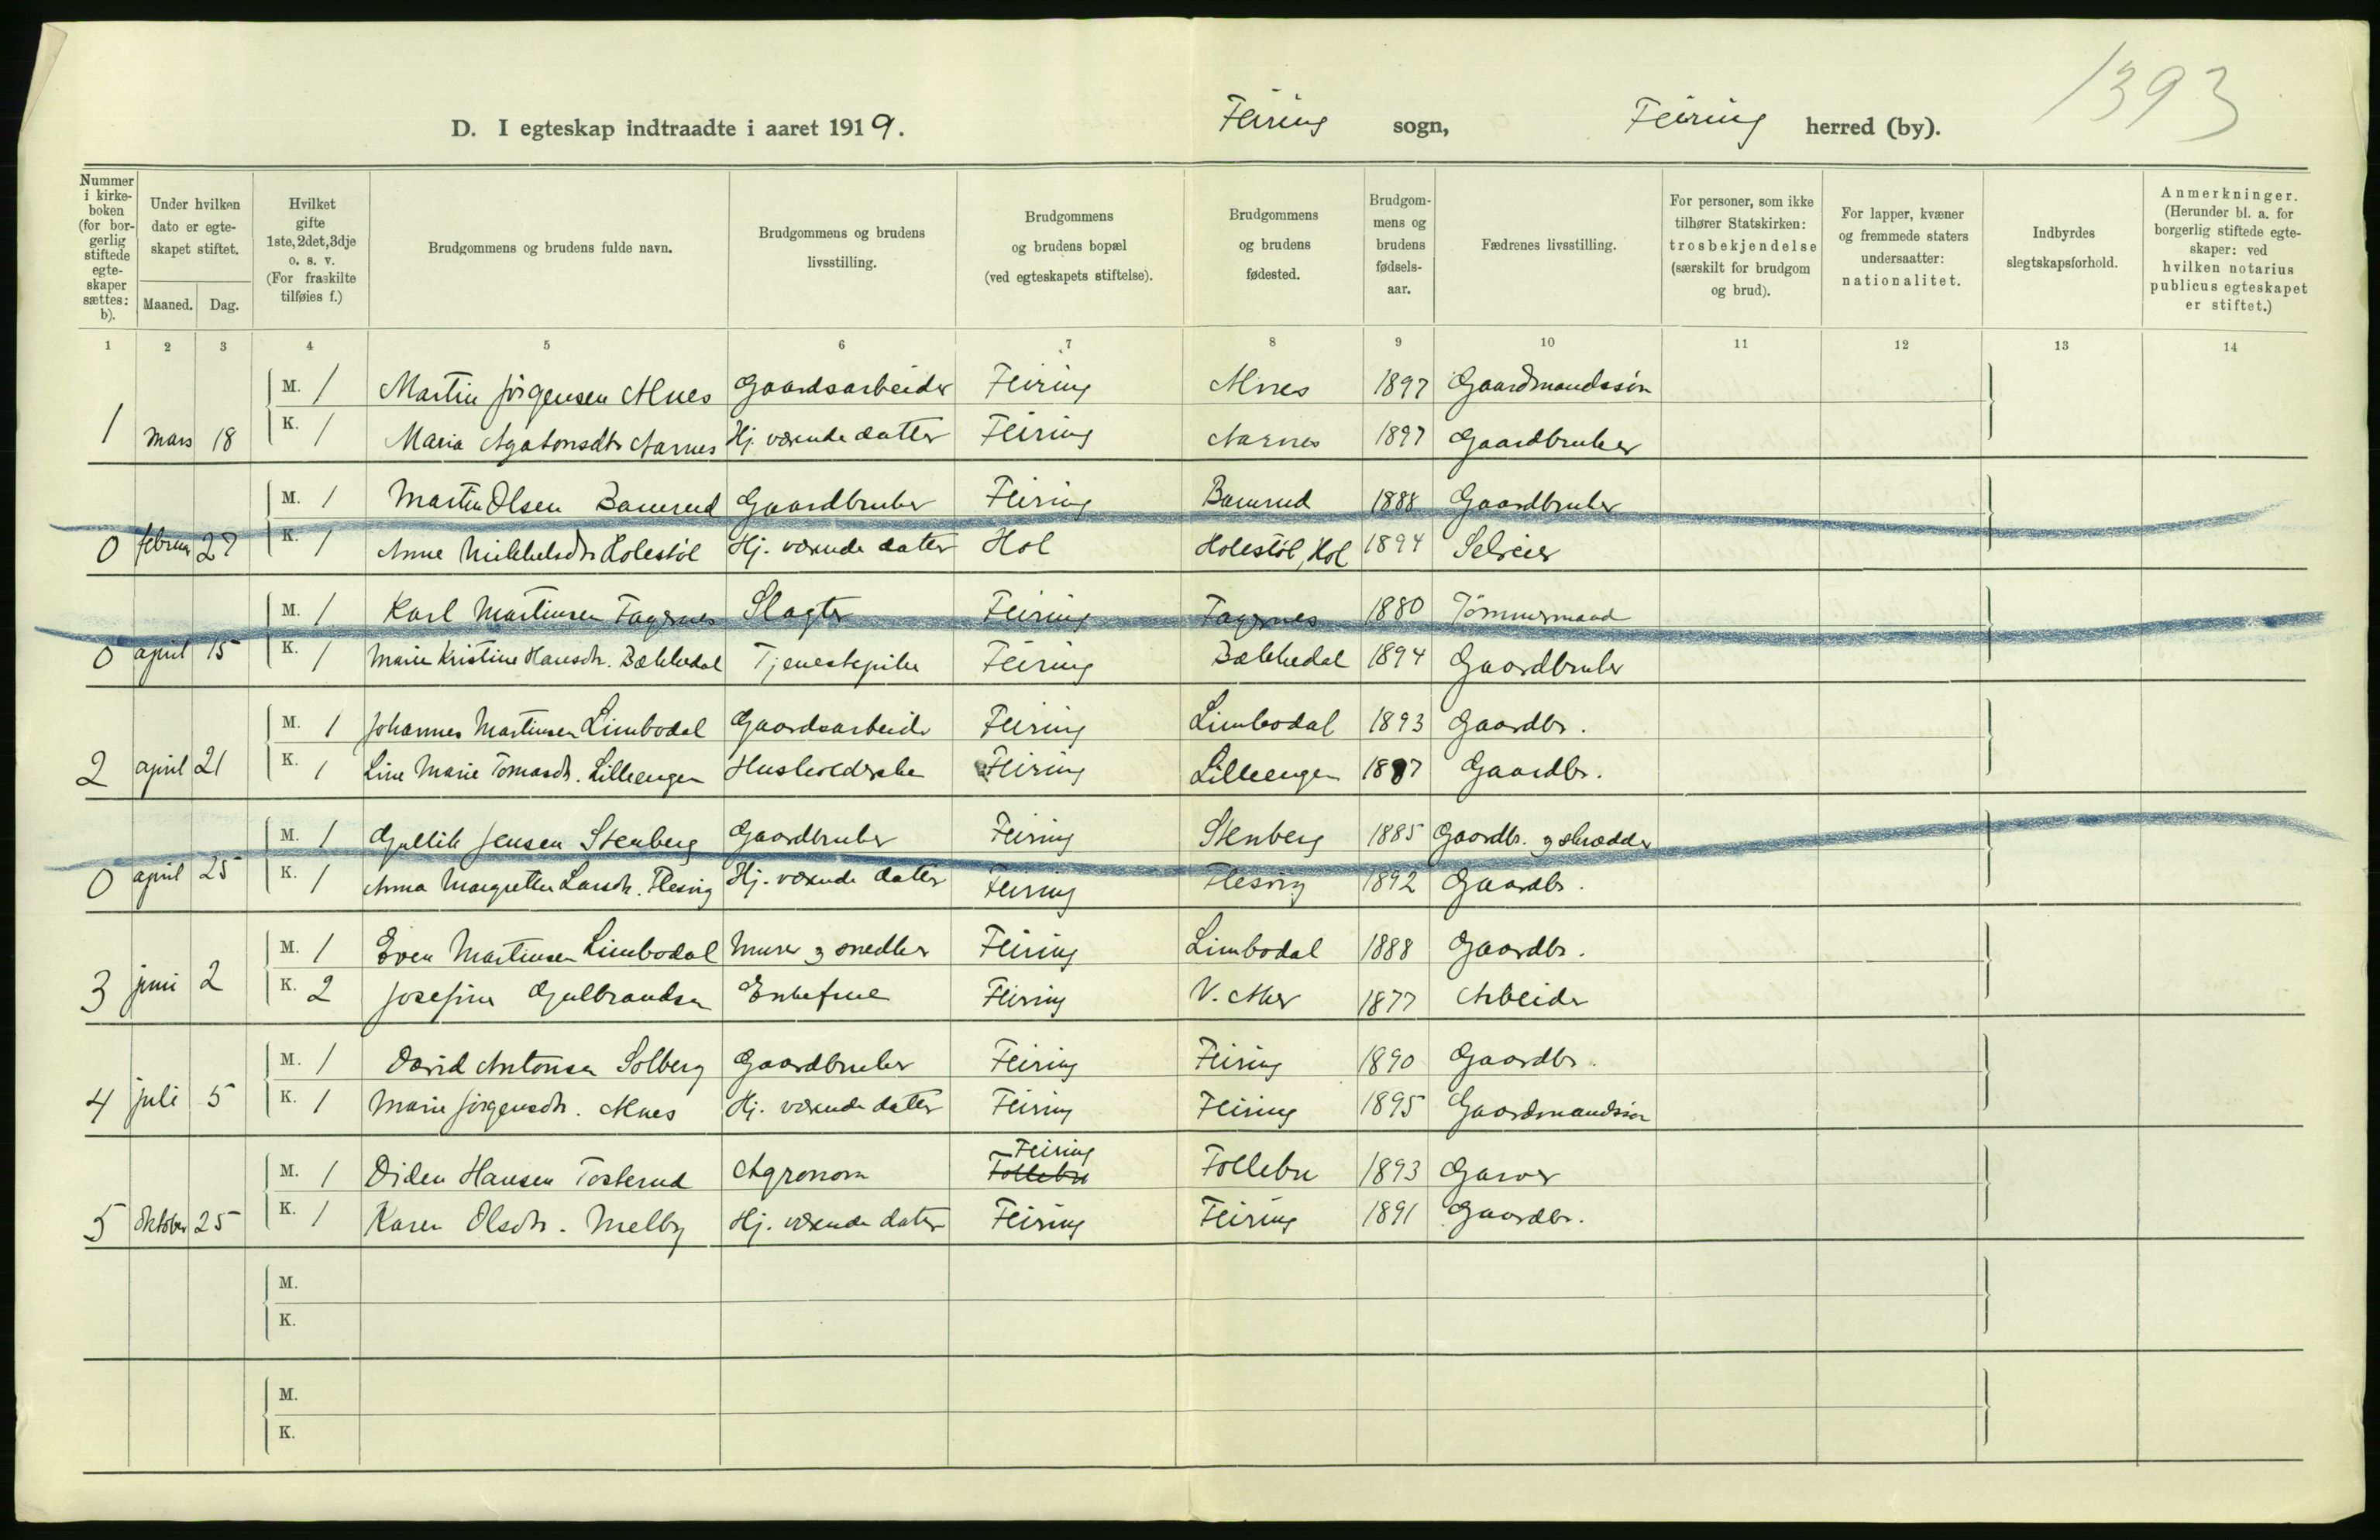 1393
D. I egteskap indtraadte i aaret 1919. Feiring sogn, Feiring herred (by).
Nummer i kirkeboken (for borgerlig stiftede egteskaper sættes: b). Under hvilken dato er egteskapet stiftet. Maaned. Dag. Hvilket gifte 1ste, 2det, 3dje o. s. v. (For fraskilte tilføies f.) Brudgommens og brudens fulde navn. Brudgommens og brudens livsstilling. Brudgommens og brudens bopæl (ved egteskapets stiftelse). Brudgommens og brudens fødested. Brudgommens og brudens fødselsaar. Fædrenes livsstilling. For personer, som ikke tilhører Statskirken: trosbekjendelse (særskilt for brudgom og brud). For lapper, kvæner og fremmede staters undersaatter: nationalitet. Indbyrdes slegtskapsforhold. Anmerkninger. (Herunder bl. a. for borgerlig stiftede egteskaper: ved hvilken notarius publicus egteskapet er stiftet.)
1 2 3 4 5 6 7 8 9 10 11 12 13 14
M. 1 Martin Jörgensen Alnes Gaardsarbeider Feiring Alnes 1897 Gaardmandssön
1 mars 18 K. 1 Maria Agatonsdtr Aarnes Hj. værende datter Feiring Aarnes 1897 Gaardbruker
M. 1 Martin Olsen Bamrud Gaardbruker Feiring Bamrud 1888 Gaardbruker
0 februar 27 K. 1 Anne Mikkelsdtr Holestöl Hj. værende datter Hol Holestöl, Hol 1894 Selveier
M. 1 Karl Martinsen Fagernes Slagter Feiring Fagernes 1880 Tömmermand
0 april 15 K. 1 Marie Kristine Hansdtr. Bækkedal Tjenestepike Feiring Bækkedal 1894 Gaardbruker
M. 1 Johannes Martinsen Limbodal Gaardsarbeider Feiring Limbodal 1893 Gaardbr.
2 april 21 K. 1 Line Marie Tomasdtr. Lilleengen Husholderske Feiring Lilleengen 1887 Gaardbr.
M. 1 Gullik Jensen Stenberg Gaardbruker Feiring Stenberg 1885 Gaardbr. og skrædder
0 april 25 K. 1 Anna Margrethe Larsdtr. Flesvig Hj. værende datter Feiring Flesvig 1892 Gaardbr.
M. 1 Even Martinsen Limbodal Murer og snedker Feiring Limbodal 1888 Gaardbr.
3 juni 2 K. 2 Josefine Gulbrandsen Enkefrue Feiring V. Aker 1877 Arbeider
M. 1 David Antonsen Solberg Gaardbruker Feiring Feiring 1890 Gaardbr.
4 juli 5 K. 1 Marie Jörgensdtr. Alnes Hj. værende datter Feiring Feiring 1895 Gaardmandssön
M. 1 Osterud Agronom Feiring Follebu Follebu 1893 Garver
5 Oktober 25 K. 1 Karen Olsdtr. Melby Hj. værende datter Feiring Feiring 1891 Gaardbr.
M.
K.
M.
K.